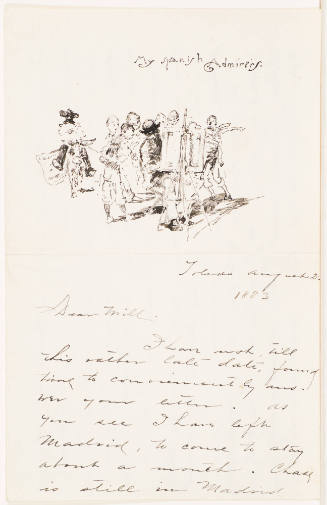 My Spanish Admirers.
Toledo August 2.
1882
Dear Will.
I have not, till
this rather late date, found
time to conveniently ans-
wer your letter. As
you see I have left
Madrid, to come to stay
about a month. Chase
is still in Madrid